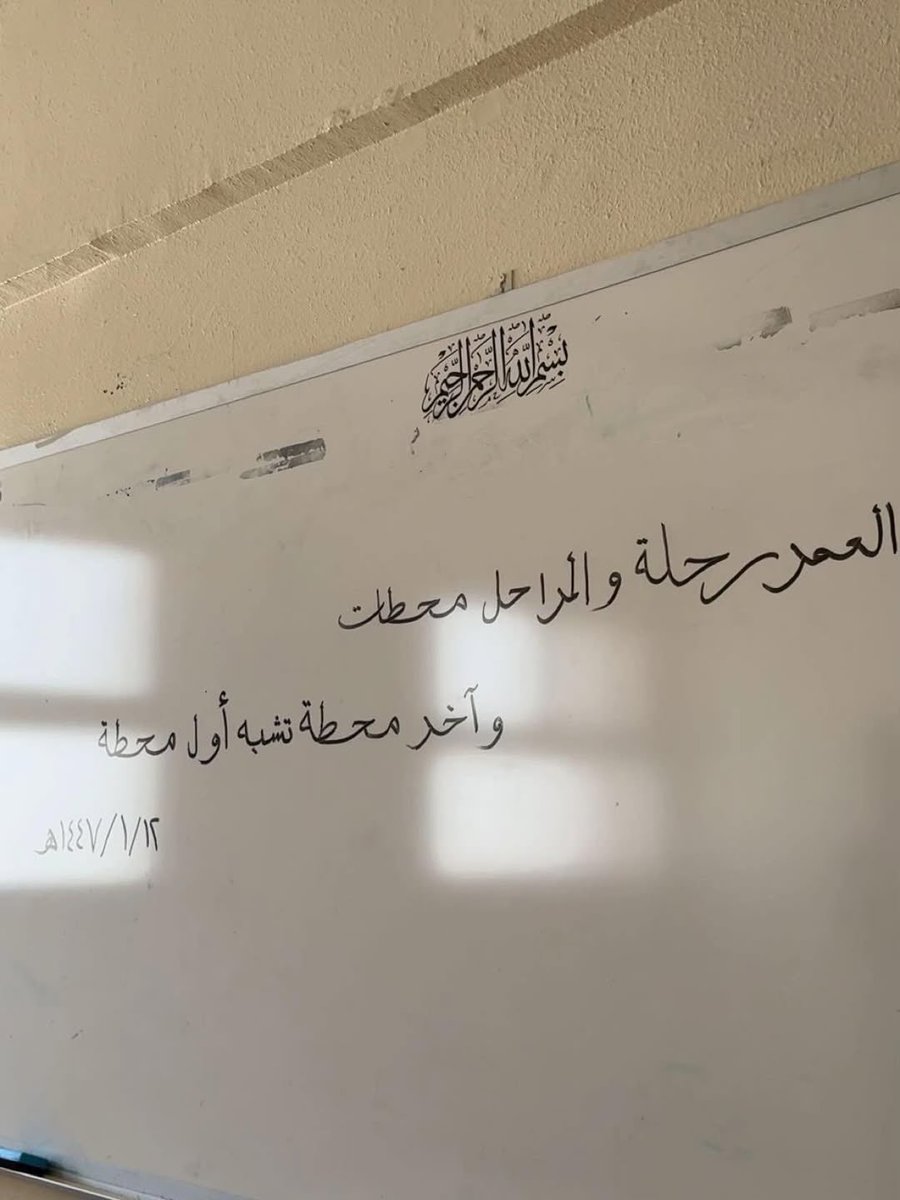 بسم الله الرحمن الرحيم
العمر رحلة والمراحل محطات
وآخر محطة تشبه أول محطة
١٤٤٧/١/١٢هـ